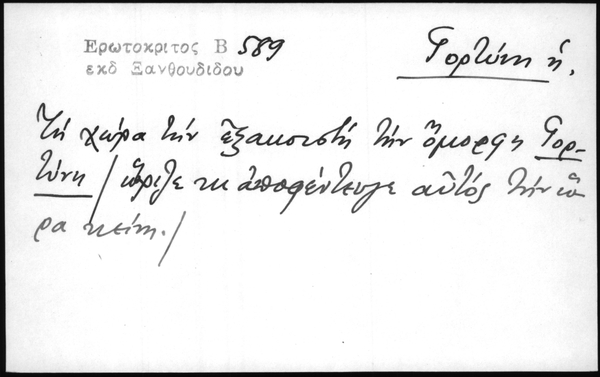 Ερωτοκριτος Β 589
εκδ Ξανθουδιδου
Γορτύνη ἡ.
Τὴ χώρα τὴν ἐξακουστὴ τὴν ὄμορφη Γορ-
τύνη / ὥριζε κι ἀποφέντευγε αὐτός τὴν ὥ
ρα κείνη. /